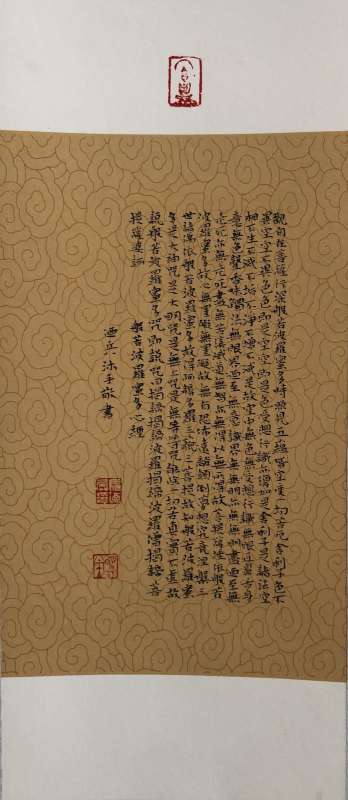 觀自在菩薩行深般若波羅蜜多時照見五蘊皆空度一切苦厄舍利子色不
異空空不異色色即是空空即是色受想行識亦復如是舍利子是諸法空
相不生不滅不垢不淨不增不減是故空中無色無受想行識無眼耳鼻舌身
意無色聲香味觸法無眼界乃至無意識界無無明亦無無明盡乃至無
老死亦無老死盡無苦集滅道無智亦無得以無所得故菩提薩埵依般若
波羅蜜多故心無罣礙無罣礙故無有恐怖遠離顛倒夢想究竟涅槃三
世諸佛依般若波羅蜜多故得阿耨多羅三藐三菩提故知般若波羅蜜
多是大神咒是大明咒是無上咒是無等等咒能除一切苦真實不虛故
說般若波羅蜜多咒即說咒曰揭諦揭諦波羅揭諦波羅僧揭諦菩
提薩婆訶
般若波羅蜜多心經
沐手敬書